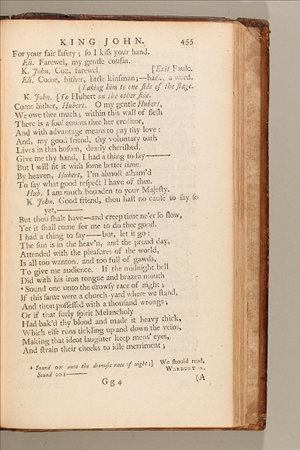 KING JOHN. 455
For your fair safety; so I kiss your hand.
Eli. Farewel, my gentle cousin.
K. John. Coz, farewel. [Exit Faulc.
Eli. Come, hither, little kinsman;—hark, a word.
[Taking him to one side of the stage.
K. John. [To Hubert on the other side.
Come hither, Hubert. O my gentle Hubert,
We owe thee much; within this wall of flesh
There is a soul counts thee her creditor,
And with advantage means to pay thy love:
And, my good friend, thy voluntary oath
Lives in this bosom, dearly cherished.
Give me thy hand, I had a thing to say——
But I will fit it with some better time.
By heaven, Hubert, I'm almost asham'd
To say what good respect I have of thee.
Hub. I am much bounden to your Majesty.
K. John. Good friend, thou hast no cause to say so
yet,——
But thou shalt have—and creep time ne'er so slow,
Yet it shall come for me to do thee good.
I had a thing to say——but, let it go:
The sun is in the heav'n, and the proud day,
Attended with the pleasures of the world,
Is all too wanton, and too full of gawds,
To give me audience. If the midnight bell
Did with his iron tongue and brazen mouth
⁴ Sound one unto the drowsy race of night;
If this same were a church-yard where we stand,
And thou possessed with a thousand wrongs;
Or if that surly spirit Melancholy
Had bak'd thy blood and made it heavy thick,
Which else runs tickling up and down the veins,
Making that ideot laughter keep mens' eyes,
And strain their cheeks to idle merriment;
⁴ Sound on unto the drowsie race of night;] We should read,
Sound one—— WARBURTON.
Gg4 (A